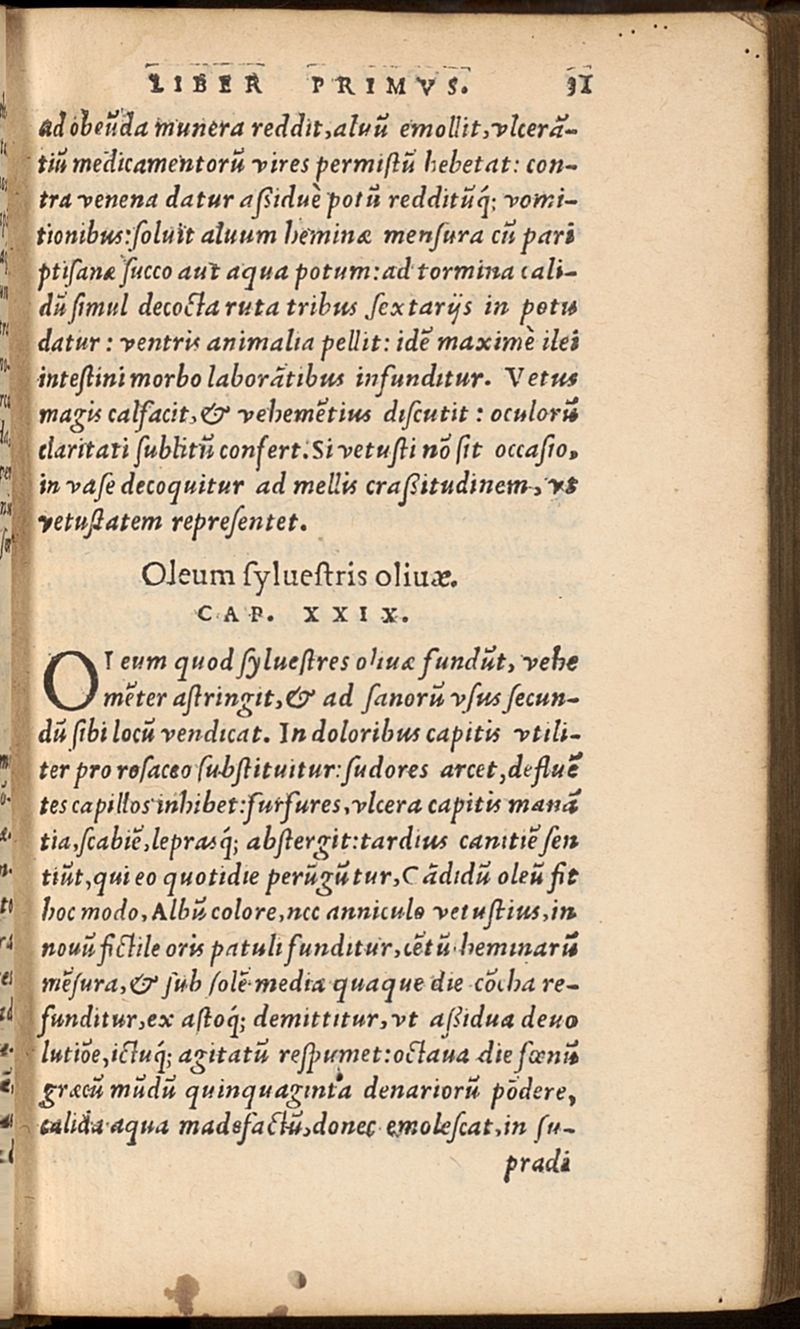 LIBER PRIMVS. 31
ad obeũda munera reddit, aluũ emollit, vlcerã-
tiũ medicamentorũ vires permistũ hebetat: con-
tra venena datur aßiduè potũ redditũq́; vomi-
tionibus: soluit aluum heminæ mensura cũ pari
ptisanæ succo aut aqua potum: ad tormina cali-
dũ simul decocta ruta tribus sextarijs in potu
datur: ventris animalia pellit: idẽ maximè ilei
intestini morbo laborãtibus infunditur. Vetus
magis calfacit, & vehemẽtius discutit: oculorũ
claritati sublitũ confert. Si vetusti nõ sit occasio,
in vase decoquitur ad mellis craßitudinem, vt
vetustatem representet.
Oleum syluestris oliuæ.
CAP. XXIX.
Oleum quod syluestres oliuæ fundũt, vehe
mẽter astringit, & ad sanorũ vsus secun-
dũ sibi locũ vendicat. In doloribus capitis vtili-
ter pro rosaceo substituitur: sudores arcet, defluẽ
tes capillos inhibet: furfures, vlcera capitis manã
tia, scabiẽ, leprasq́; abstergit: tardius canitiẽ sen
tiũt, qui eo quotidie perũgũtur, Cãdidũ oleũ fit
hoc modo, Albũ colore, nec anniculo vetustius, in
nouũ fictile oris patuli funditur, cẽtũ heminarũ
mẽsura, & sub solẽ media quaque die cõcha re-
funditur, ex astoq́; demittitur, vt aßidua deuo
lutiõe, ictuq́; agitatũ respumet: octaua die fœnũ
græcũ mũdũ quinquaginta denariorũ põdere,
calida aqua madefactũ, donec emolescat, in su-
pradi